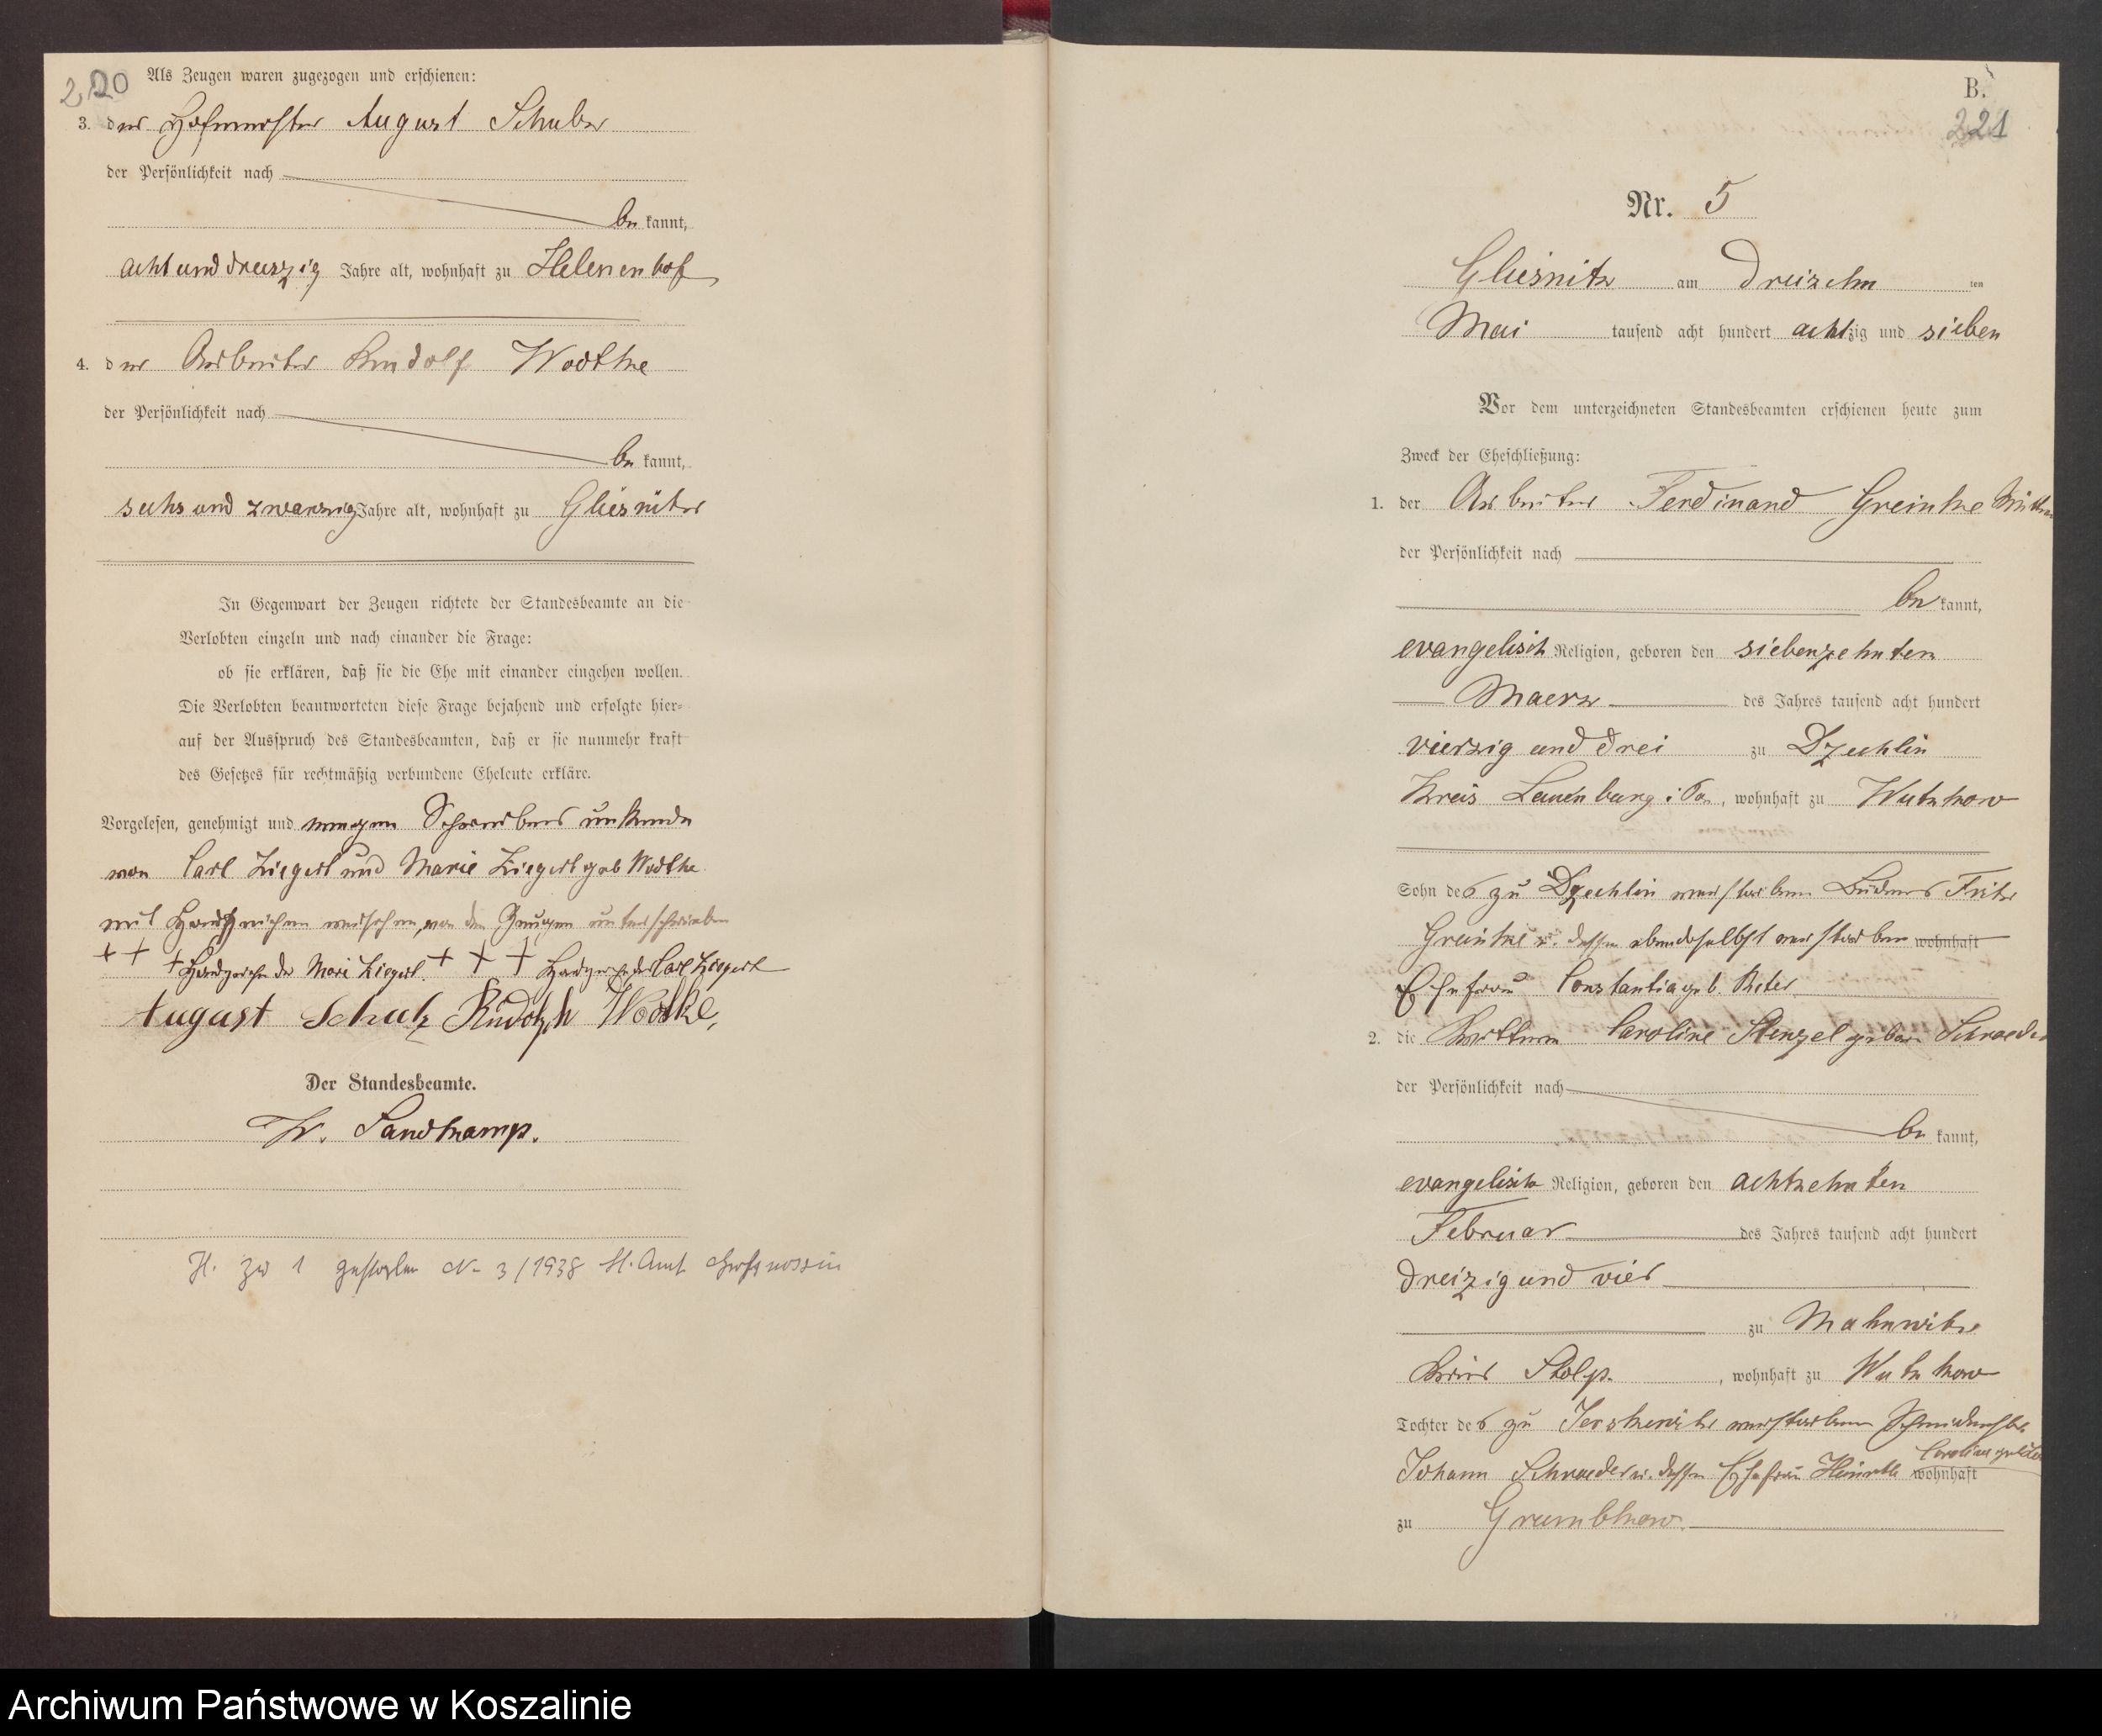 220
Als Zeugen waren zugezogen und erschienen:
3. der Hofmeister August Schulz
der Persönlichkeit nach
be kannt,
acht und dreiszig Jahre alt, wohnhaft zu Helenenhof
4. der Arbeiter Rudolf Wodtke
der Persönlichkeit nach
be kannt,
sechs und zwanzig Jahre alt, wohnhaft zu Gliesnitz
In Gegenwart der Zeugen richtete der Standesbeamte an die
Verlobten einzeln und nach einander die Frage:
ob sie erklären, daß sie die Ehe mit einander eingehen wollen.
Die Verlobten beantworteten diese Frage bejahend und erfolgte hier-
auf der Ausspruch des Standesbeamten, daß er sie nunmehr kraft
des Gesetzes für rechtmäßig verbundene Eheleute erkläre.
Vorgelesen, genehmigt und wegen Schreibens unkunde
von Carl Ziegert und Marie Ziegert geb Wodtke
mit Handzeichen versehen, von den Zeugen unterschrieben
+ + + Handzeichen der Marie Ziegert + + + Handzeichen des Carl Ziegert
August Schulz Rudolph Wodtke,
Der Standesbeamte.
W. Sandkamp.
H. zu 1 gestorben Nr 3/1938 St. Amt
B.
221
Nr. 5
Gliesnitz am dreizehn ten
Mai tausend acht hundert achtzig und sieben
Vor dem unterzeichneten Standesbeamten erschienen heute zum
Zweck der Eheschließung:
1. der Arbeiter Ferdinand Greinke Wittwer
der Persönlichkeit nach
be kannt,
evangelisch Religion, geboren den siebenzehnten
Maerz des Jahres tausend acht hundert
vierzig und drei zu Dzechlin
Kreis Lauenburg i Po, wohnhaft zu Wutzkow
Sohn des zu Dzechlin verstorbenen Büdners Fritz
Greinke u. dessen ebendaselbst verstorbenen wohnhaft
Ehefrau Constantia geb.
2. die Wittwe Caroline Stenzel geboren Schroeder
der Persönlichkeit nach
be kannt,
evangelisch Religion, geboren den achtzehnten
Februar des Jahres tausend acht hundert
dreizig und vier
zu Mahnwitz
Kreis Stolp, wohnhaft zu Wutzkow
Tochter des zu Jerskewitz verstorbenen
Johann Schroeder u. dessen Ehefrau wohnhaft
zu Grumbkow.
Archiwum Państwowe w Koszalinie